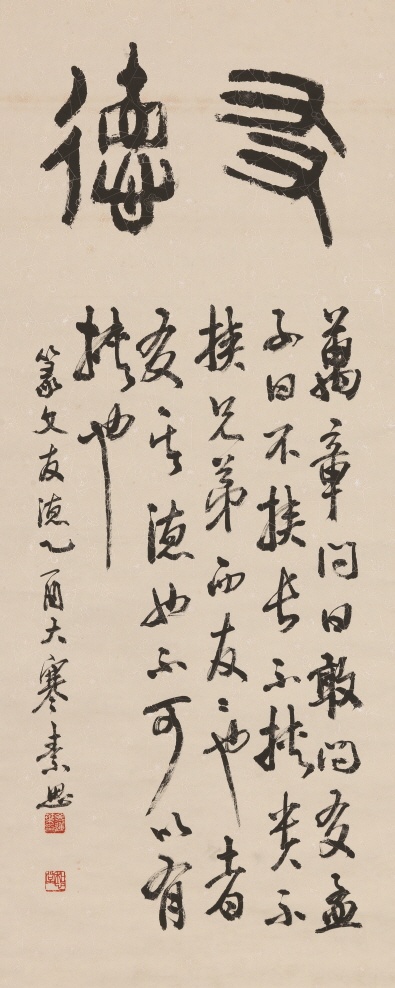 友德
萬章問曰敢問友孟
子曰不挾長不挾貴不
挾兄弟而友〻也者
友其德也不可以有
挾也
篆文友德乙酉大寒素